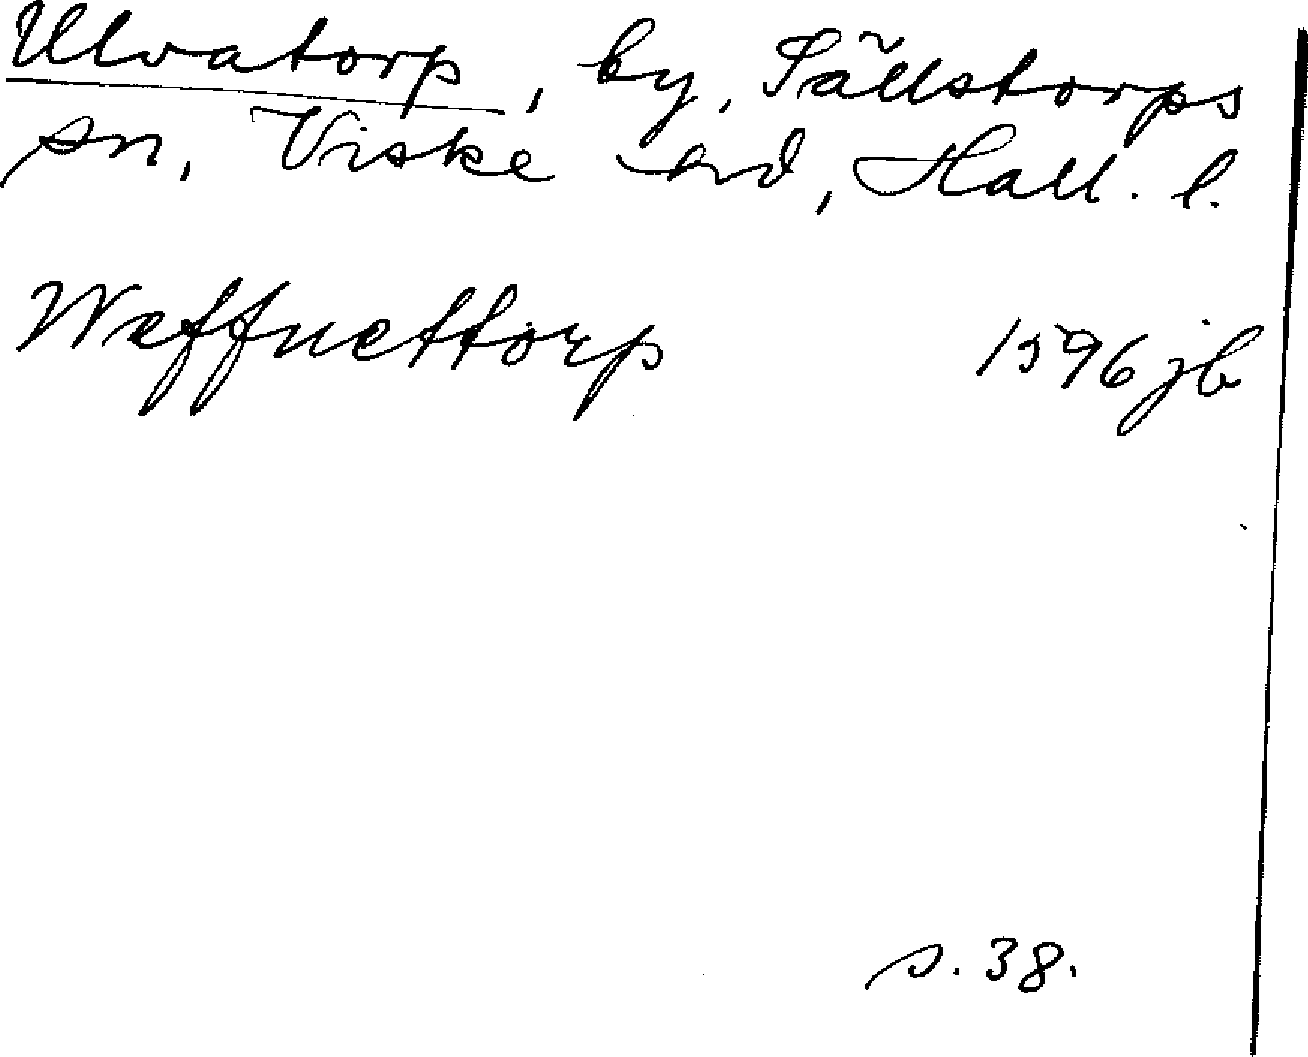 Ulvatorp, by, Sällstorps
sn, Viske hd, Hall. l.
Weffuettorp 1596 jb
s. 38.